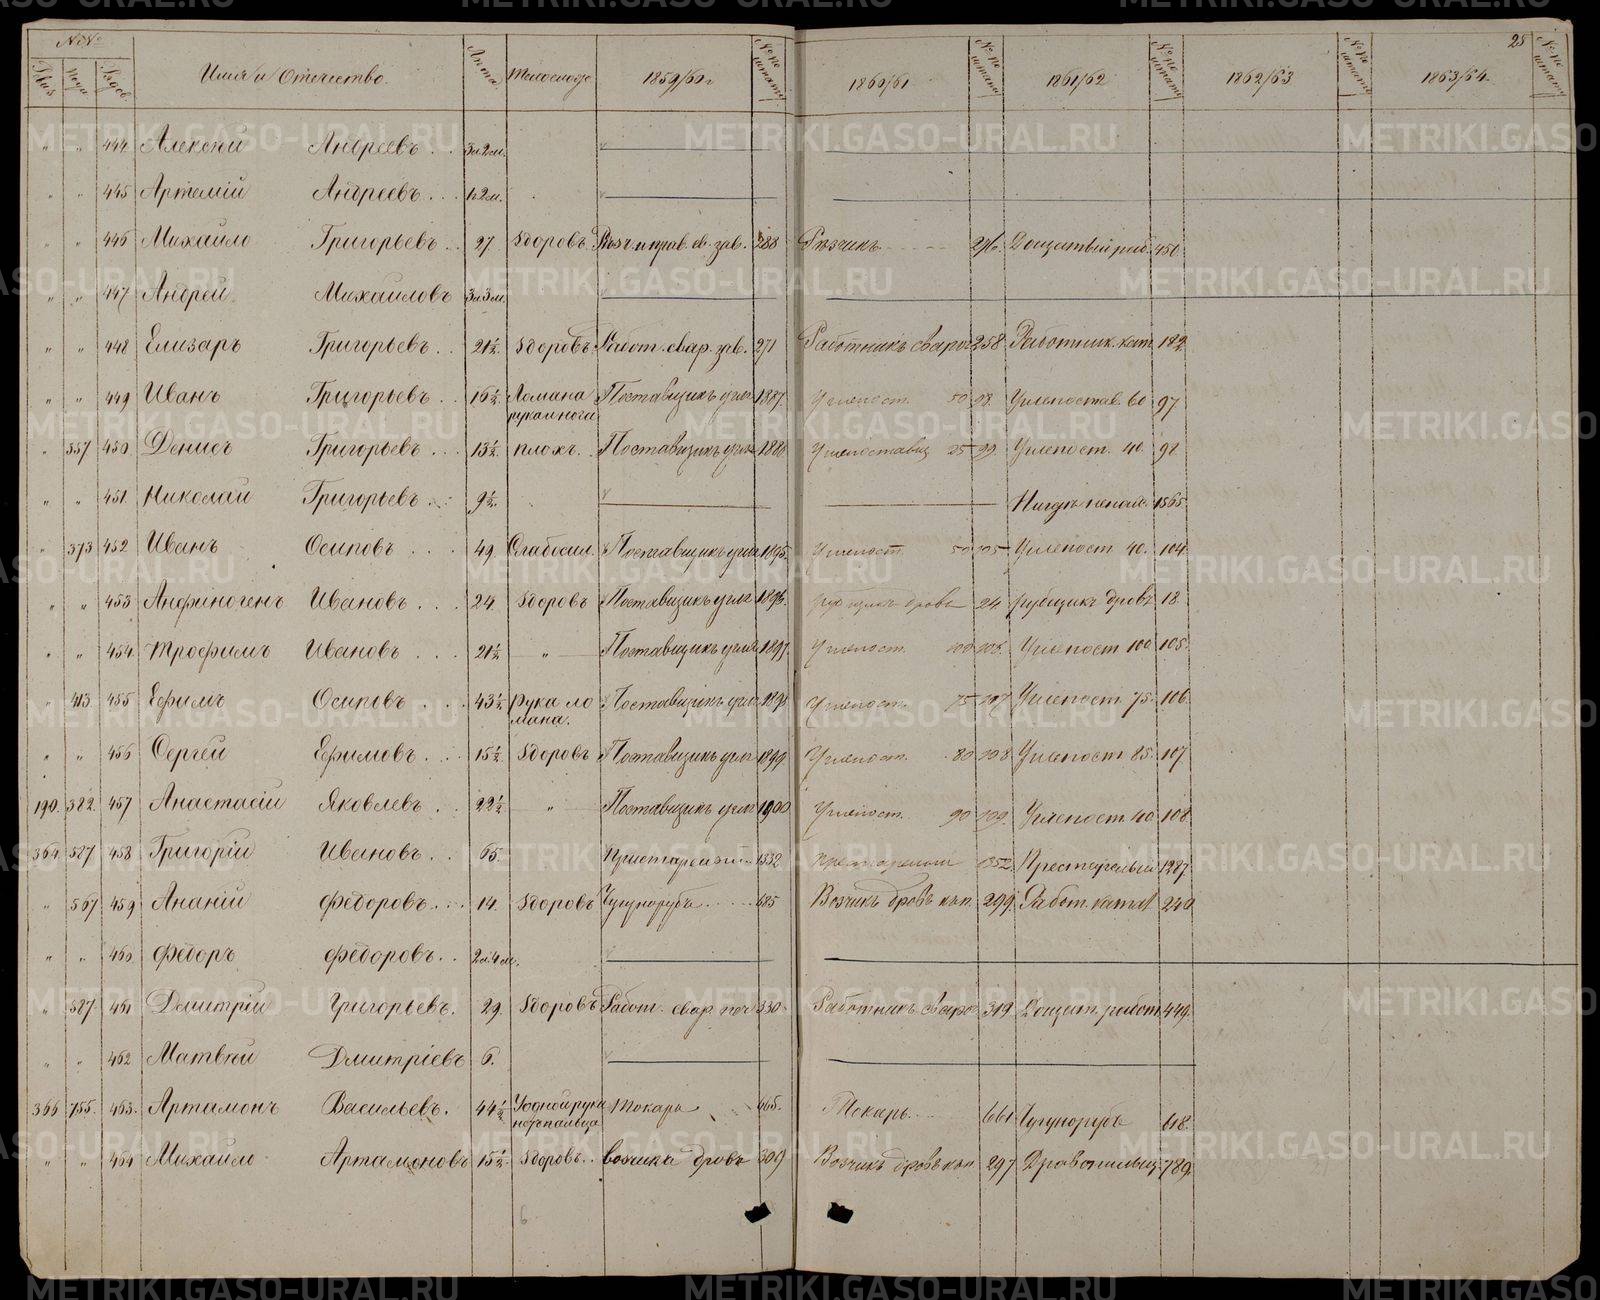 25
№№
Имя и Отчество. Лѣта. Телосложе 1859/60 г. №№ по штату 1860/61 №№ по штату 1861/62 №№ по штату 1862/63 №№ по штату 1863/64. №№ по штату
" " 444 Алексѣй Андреевъ . . 3 л 2 м.
" " 445 Артемій Андреевъ . . . 1 г. 2 м.
" " 446 Михайло Григорьевъ . . 27. Здоровъ. 288 Рѣзчикъ 276. Дощатый раб. 450.
" " 447 Андрей Михайловъ 3 л 3 м.
" " 448 Елизаръ Григорьевъ . . 21½ Здоровъ. Работ. свар. зав. 271 Работникъ сваро 258 Работник. кат. 182
" " 449 Иванъ Григорьевъ . . 16½ Ломана рука и нога Поставщикъ угля 1887. Углепост. 50 98. Углепостав. 60 97
" 357 450 Денисъ Григорьевъ . . . 13½ плохъ. . Поставщикъ угля 1888 Углепоставщ 25 99 Углепост. 40. 98.
" " 451 Николай Григорьевъ . . . 9½. Нигдѣ непом. 1365
" 373 452 Иванъ Осиповъ . . . . 49. Слабосил. Поставщикъ угля 1895. Углепост. 50 105 Углепост 40. 104.
" " 453 Анфиногенъ Ивановъ . . . 24. Здоровъ Поставщикъ угля 1896. рубщикъ дровъ 24 рубщикъ дровъ 18.
" " 454 Трофимъ Ивановъ . . . 21½ " Поставщикъ угля 1897. Углепост. 100 106. Углепост 100 105.
" 413 455 Ефимъ Осиповъ . . . . 43½ Рука ло мана. Поставщикъ угля 1898. Углепост. 75 107 Углепост. 75. 106.
" " 456 Сергей Ефимовъ . . . 15½ Здоровъ Поставщикъ угля 1899 Углепост. 80 108 Углепост 85. 107.
190. 382. 457 Анастасій Яковлевъ . . 22½ " Поставщикъ угля 1900 Углепост. 90 109. Углепост. 40 108.
364 387 458 Григорій Ивановъ . . 65. Престарелый 1332 престарелый 1352 Престарелый 1287.
" 567 459 Ананій Федоровъ. . . . 14. Здоровъ Чугунорубъ . . . 685 Возчикъ дровъ кът. 299. Работ. катал 240
" " 460 Федоръ Федоровъ. . . 2 л. 4 м.
" 587. 461 Дмитрій Григорьевъ. 29. Здоровъ Работ. свар. печ 330 Работникъ сваро 319 Дощат. работ. 449.
" " 462 Матвѣй Дмитріевъ 6.
366 755. 463. Артамонъ Васильевъ. 44½ У одной руки нетъ пальца Токарь 665. Токарь. 661 Чугунорубъ 618.
" " 464 Михайло Артамоновъ 15½ Здоровъ . . возчикъ дровъ 309 Возчикъ дровъ 297 Дровопильщ. 789.
6
METRIKI.GASO-URAL.RU